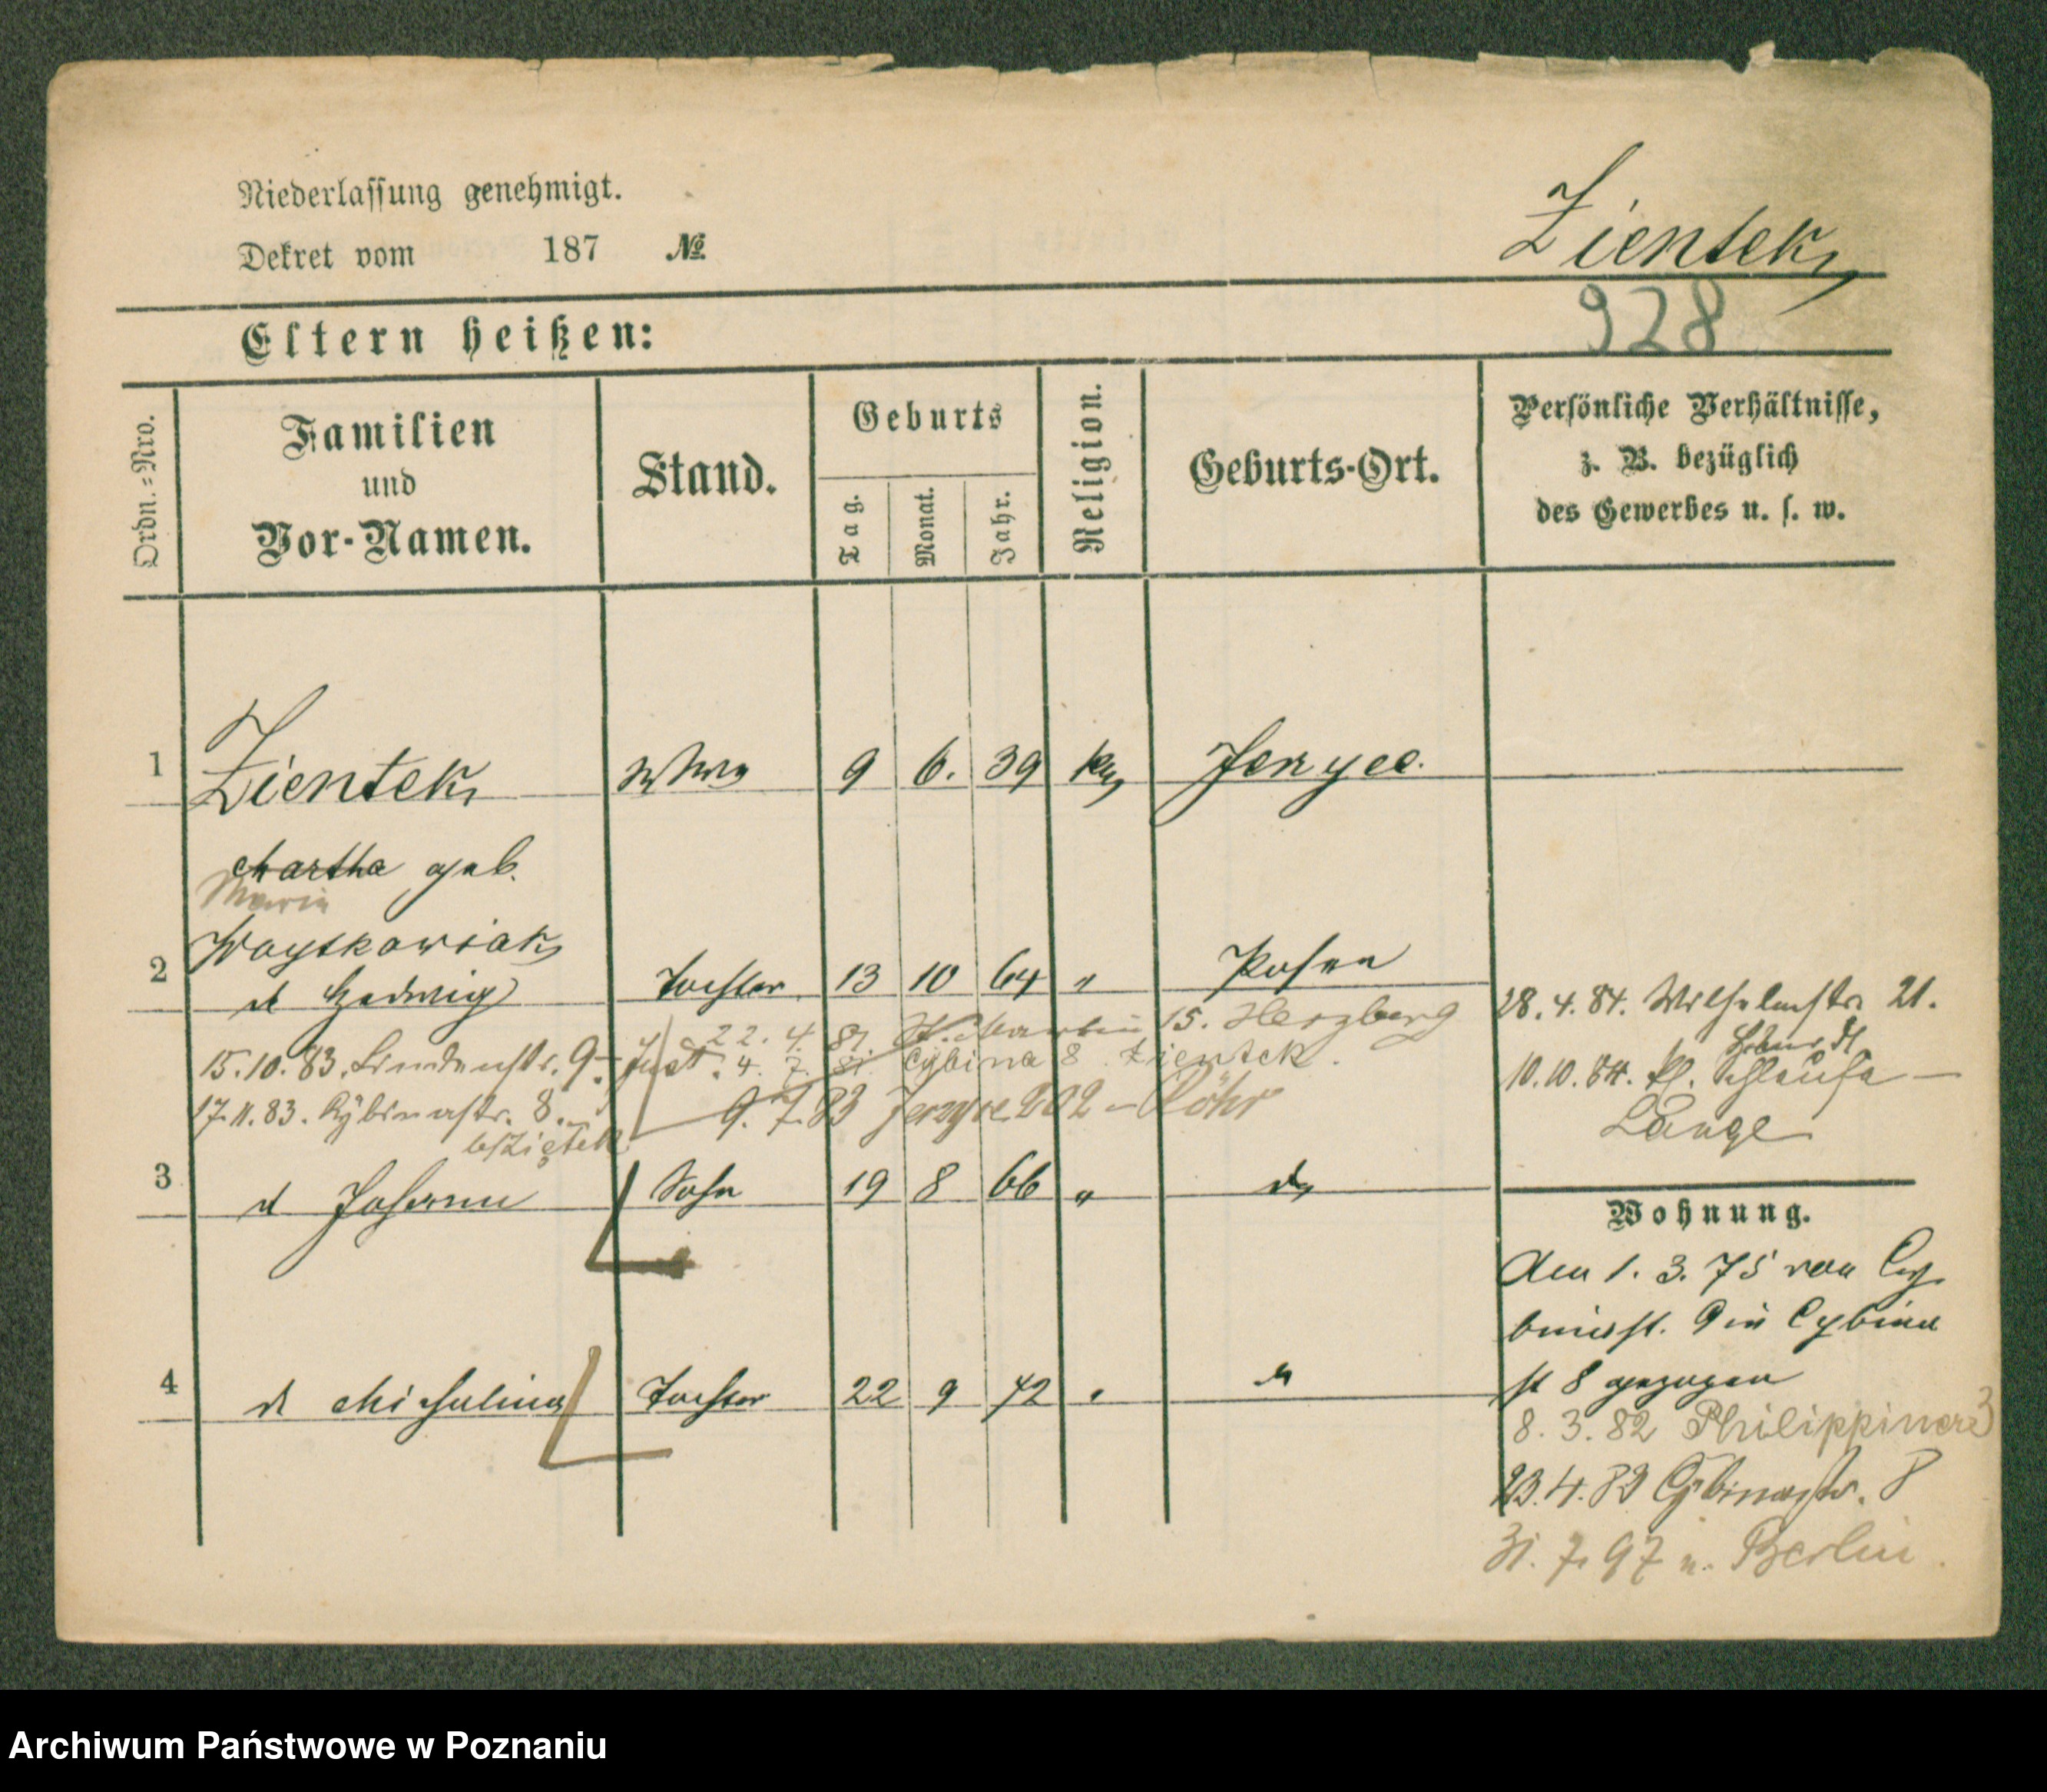 Niederlassung genehmigt.
Dekret vom 187 №
Zientek
928
Eltern heißen:
Ordn.-Nro.
Familien und Vor-Namen.
Stand.
Geburts
Tag.
Monat.
Jahr.
Religion.
Geburts-Ort.
Persönliche Verhältnisse,
z. B. bezüglich
des Gewerbes u. s. w.
1 Zientek Wwe 9 6. 39 kt Jerzyce.
Martha geb.
Maria
Woytkowiak
2 d Hedwig Tochter 13 10 64 " Posen
22. 4. 81. St. Martin 15. Herzberg
28. 4. 84. Wilhelmstr. 21.
15.10.83. Lindenstr. 9.
4. 7. 81. Cybina 8 Zientek.
10.10.84. kl. Schleuse —
Lange
17.11.83. Cybinastr. 8.
b/Ziętek
9. 7. 83 Jerzyce 202 – Röhr
3 d Johann Sohn 19 8 66 " do
Wohnung.
Am 1. 3. 75 von Cy-
binast. 9 in Cybina
st 8 gezogen
4 d Michalina Tochter 22 9 72 " do
8. 3. 82 Philippiner 3
23. 4. 83 Cybinastr. 8
31. 7. 97 n. Berlin.
Archiwum Państwowe w Poznaniu